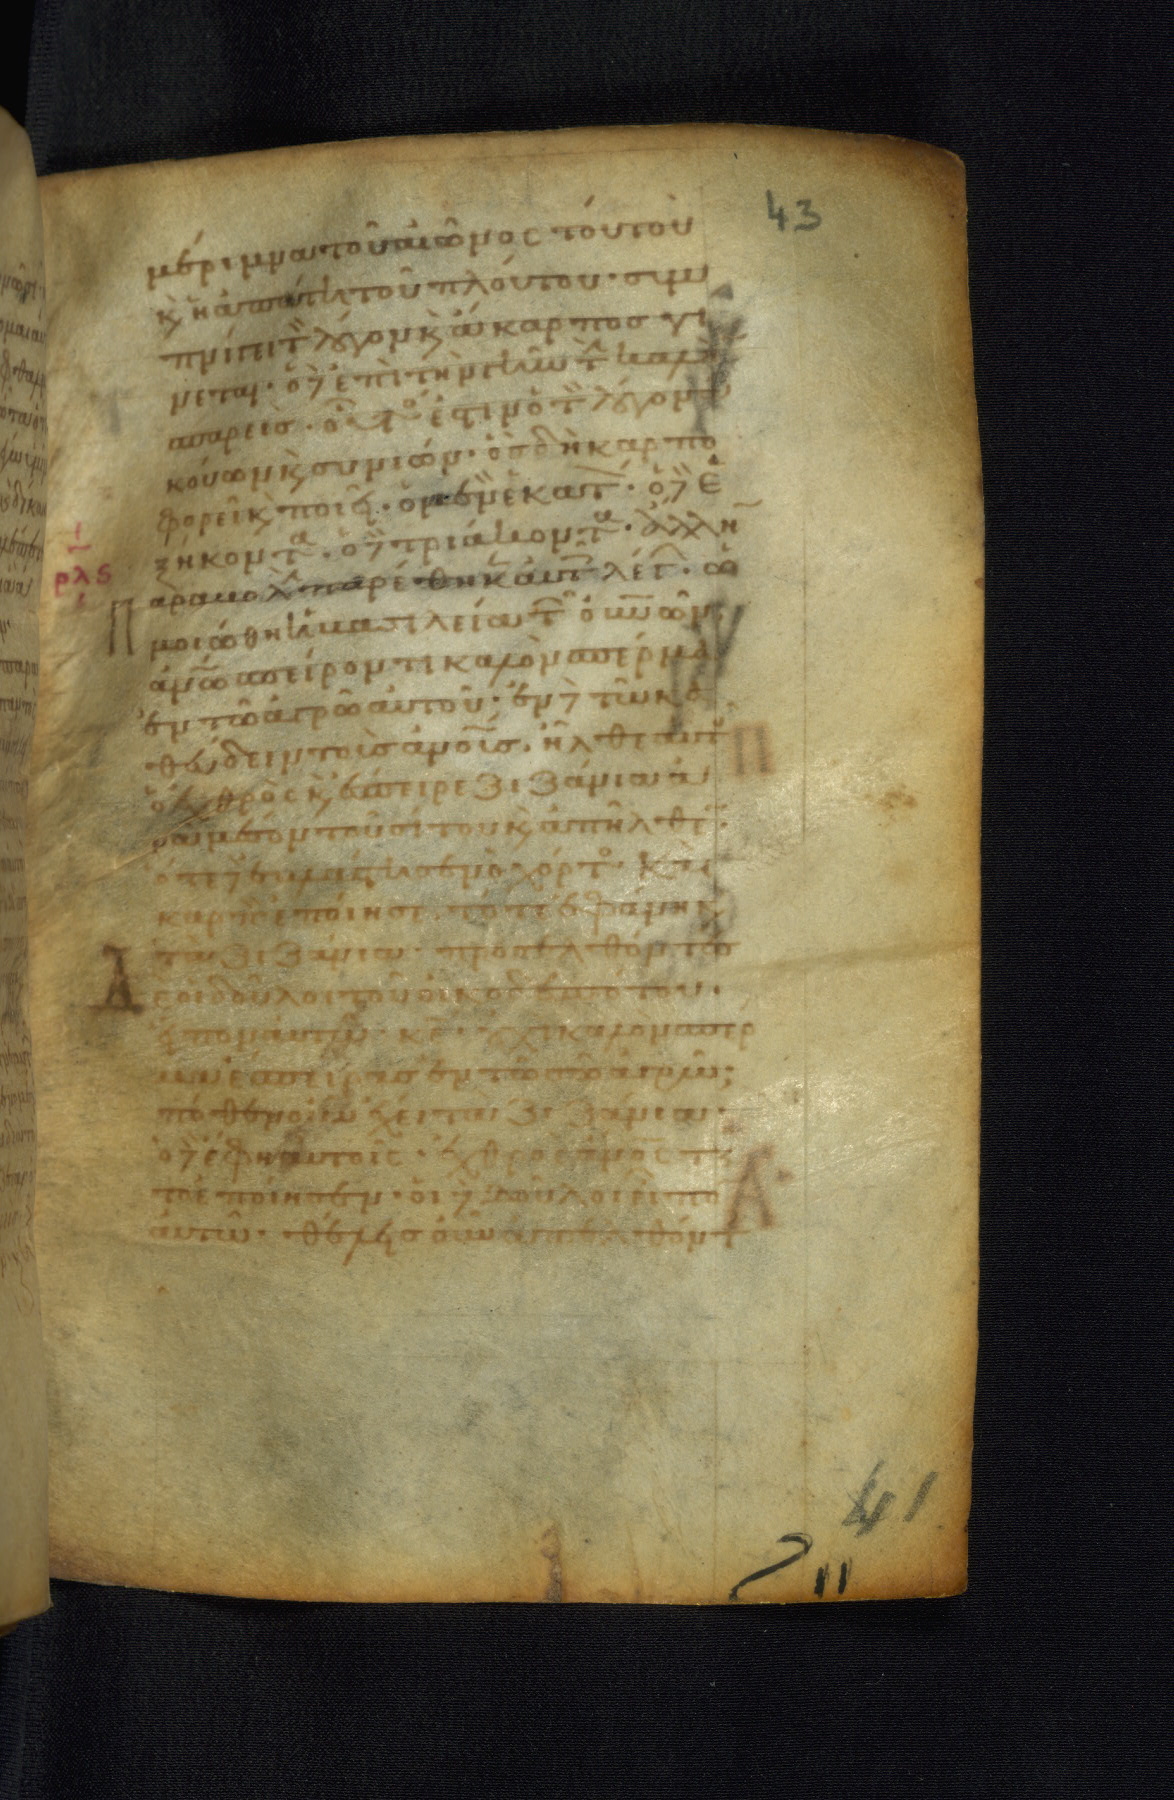 43
μέριμνα τοῦ αἰῶνος τούτου
κ̀ ἡ ἀπάτη τοῦ πλούτου· συμ
πνίγει τ̀ λόγον κ̀ ἄκαρπος γί
νεται· ὁ δ̀ ἐπὶ τὴν γῆν τ̀ καλὴν
σπαρείς· οὗτός ἐστιν ὁ τ̀ λόγον ἀ
κούων κ̀ συνιών· ὃς δὴ καρπο
φορεῖ κ̀ ποιεῖ· ὁ μὲν ἑκατ̀· ὁ δ̀ ἑ
ξήκοντα· ὁ δ̀ τριάκοντα· ἄλλην
ρλς
Παραβολ̀ παρέθηκ̀ αὐτ̀ λέγ̀· ὡ
μοιώθη ἡ βασιλεία τ̀ οὐνων
ἀνω σπείροντι καλὸν σπέρμα
ἐν τῶ ἀγρῶ αὐτοῦ· ἐν δ̀ τῶ κα
θεύδειν τοὺς ἀνους· ἦλθεν αὐτ̀
ὁ ἐχθρὸς κ̀ ἔσπειρε ζιζάνια ἀ
να μέσον τοῦ σίτου κ̀ ἀπῆλθεν·
ὅτε δ̀ ἐβλάστησεν ὁ χόρτος κ̀
καρπὸ ἐποίησε, τότε ἐφάνη κ̀
τὰ ζιζάνια· προσελθόντ̀
ες οἱ δοῦλοι τοῦ οἰκοδεσπότου·
εἶπον αὐτῶ· κε· οὐχὶ καλὸν σπέρ
μα ἔσπειρας ἐν τῶ σῶ ἀγρῶ;
πόθεν οὖν ἔχει τὰ ζιζάνια·
ὁ δ̀ ἔφη αὐτοῖς· ἐχθρὸς ἀνος τοῦ
το ἐποίησεν· οἱ δ̀ δοῦλοι εἶπον
αὐτῶ· θέλεις οὖν ἀπελθόντ̀
41